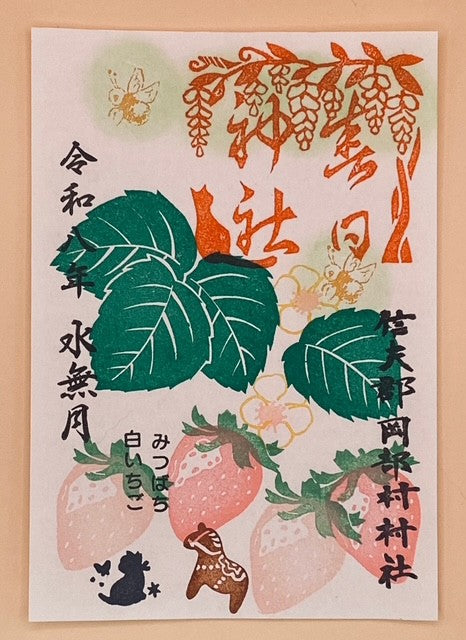 春日
神社
信夫郡岡部村村社
令和八年 水無月
みつばち
白いちご